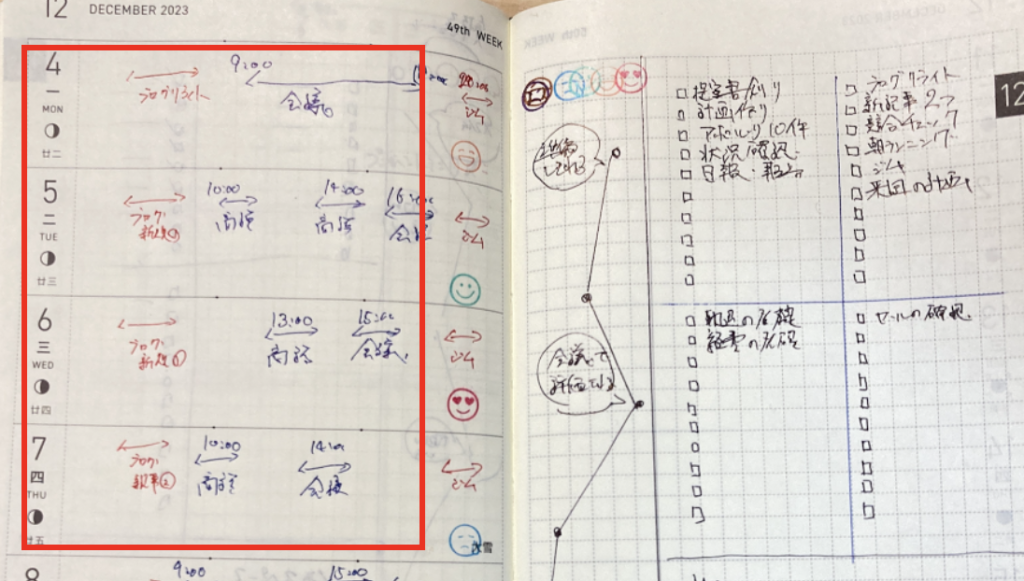 12 DECEMBER 2023
49th WEEK
4
一
MON
廿二
9:00
ブログリライト
会議
ジム
5
二
TUE
廿三
10:00 14:00 16:00
ブログ
商談 商談 会議
ジム
6
三
WED
廿四
13:00 15:00
ブログ
新規①
商談 会議
ジム
7
四
THU
廿五
10:00 14:00
ブログ
商談 会議
ジム
大雪
8
9:00 15:00
12
提案書創り
計画作り
アポどり 10件
状況確認
日報・報告
ブログリライト
新記事2つ
競合チェック
朝ランニング
ジム
来週の計画
勤退の確認
経費の確認
セールの確認
会議で